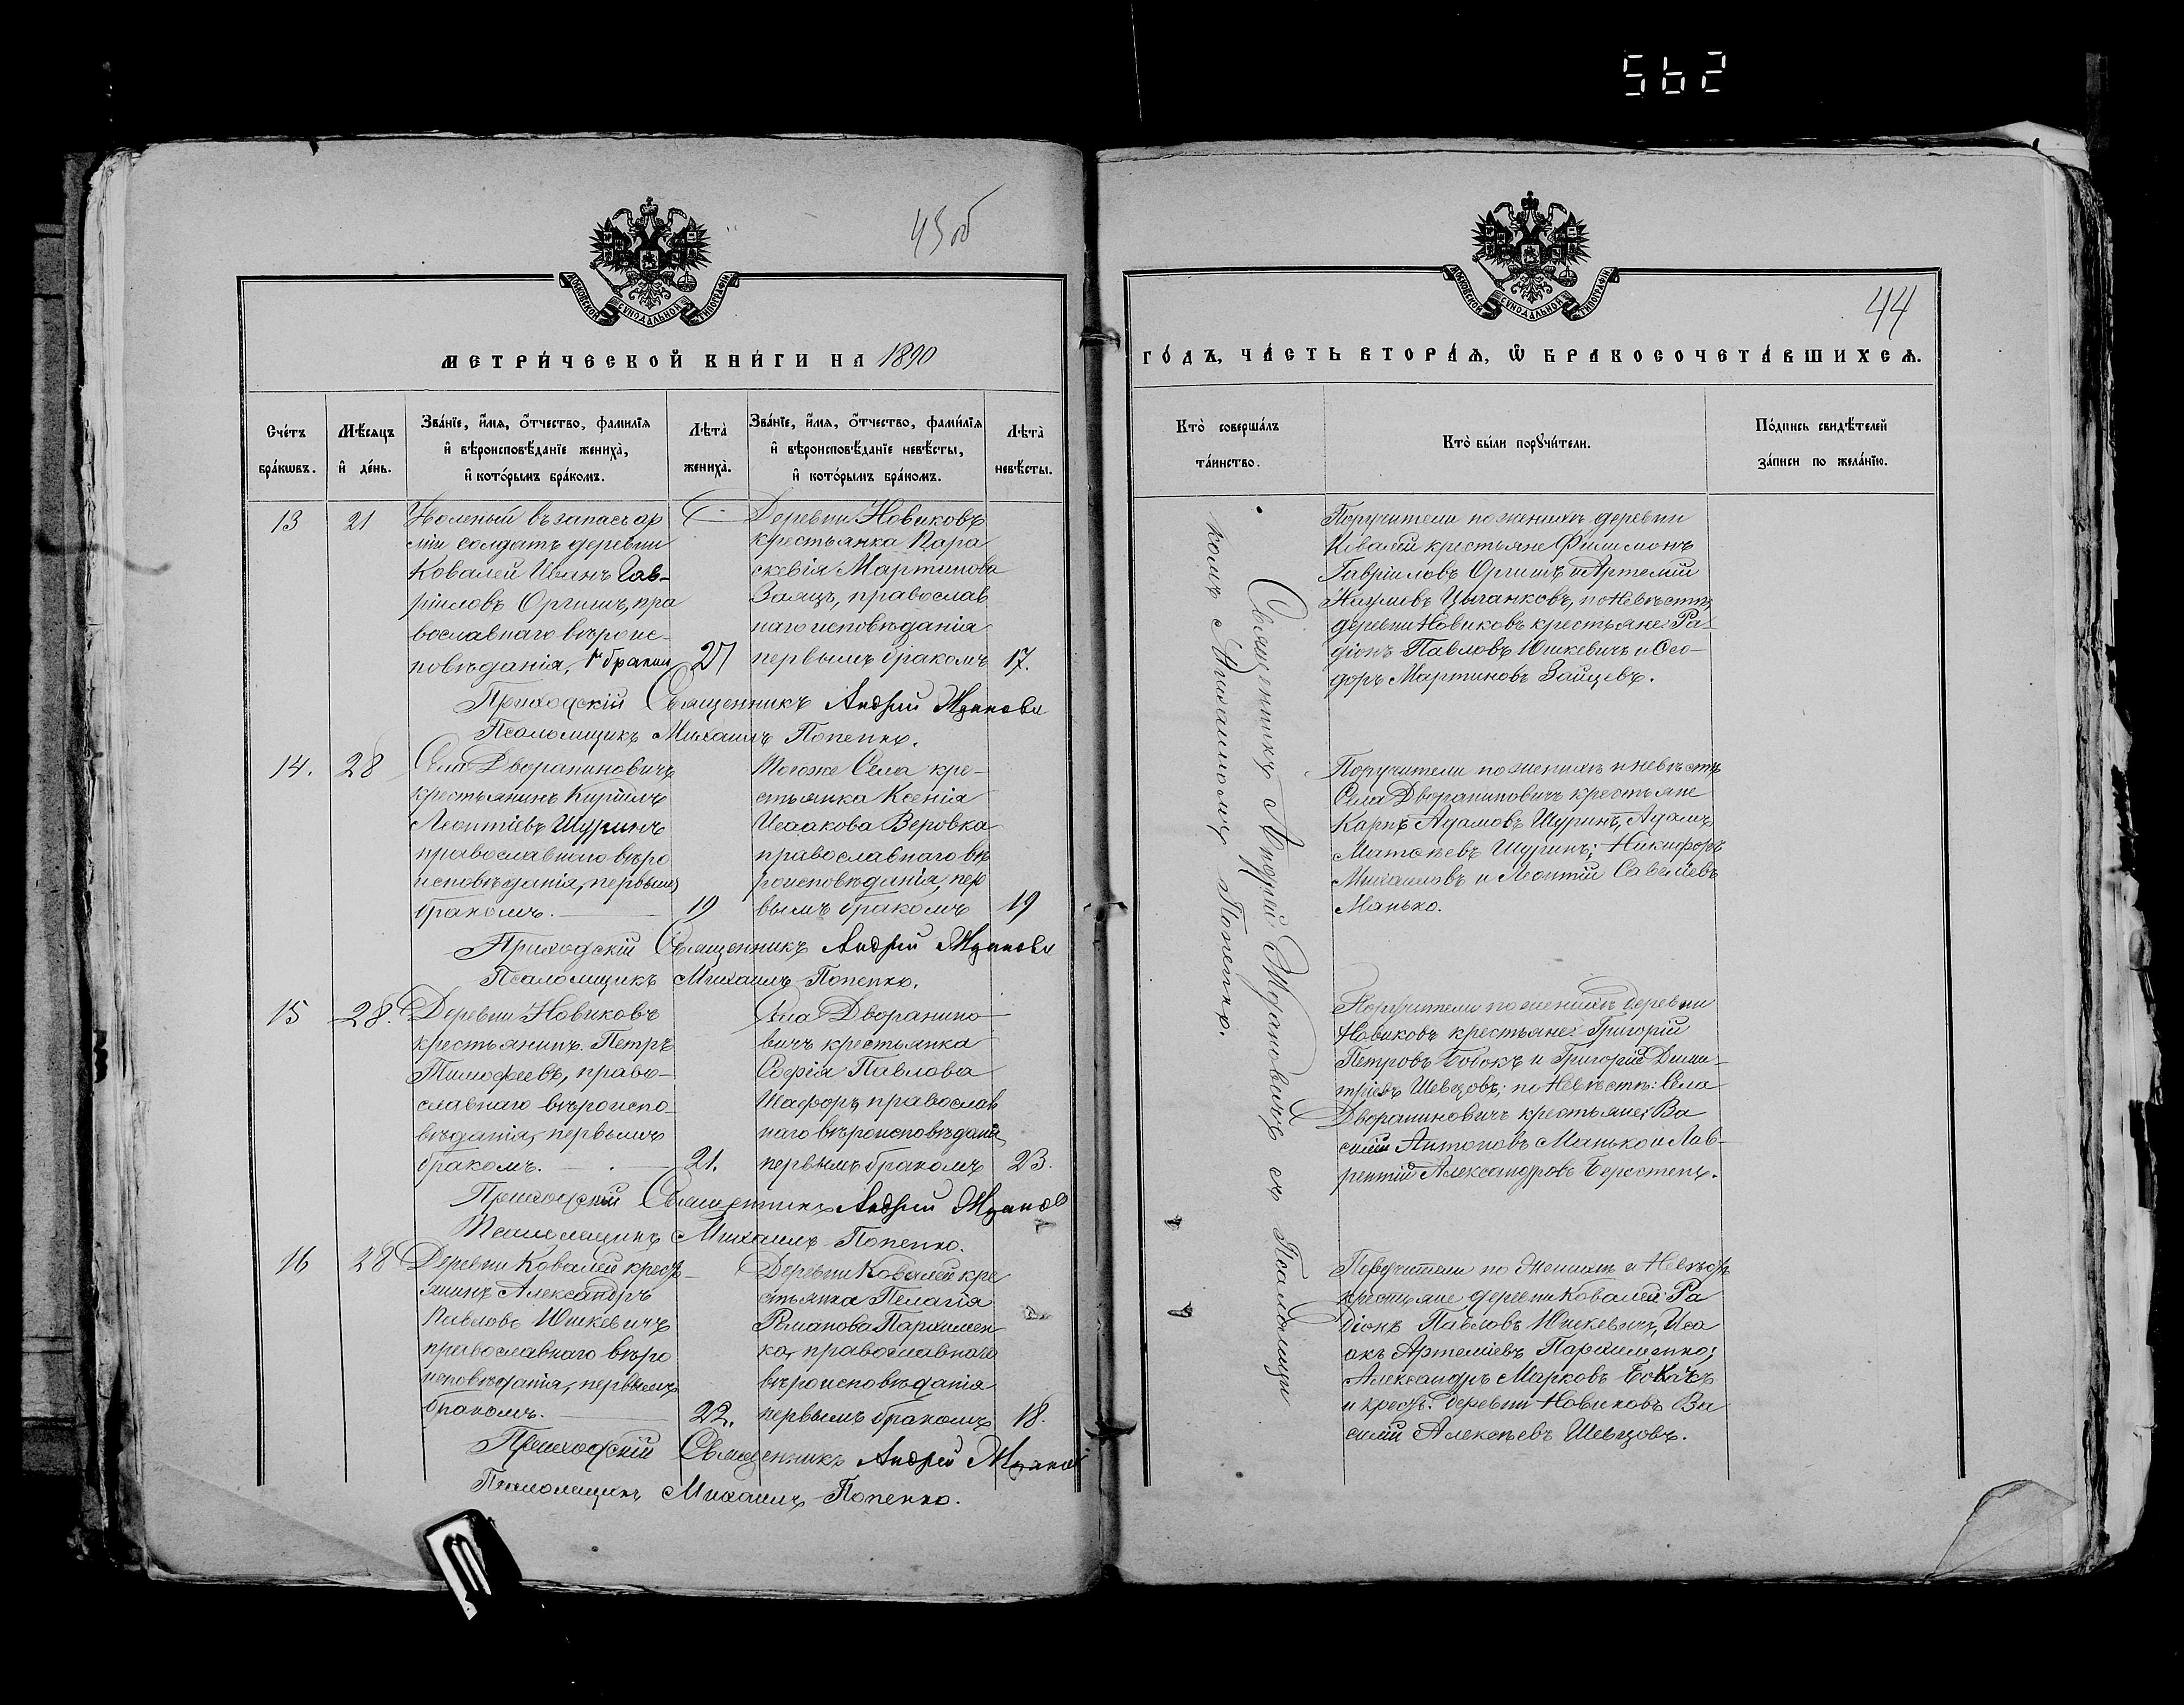 562
43 об
МОСКОВСКОЙ СѴНОДАЛЬНОЙ ТИПОГРАФІИ
МЕТРИ́ЧЕСКОЙ КНИ́ГИ НА 1890
Сче́тъ бра́кωвъ.
Мѣ́сяцъ и҆ де́нь.
Зва́нїе, и҆́мя, ѻ҆́тчество, фами́лїя
и҆ вѣроисповѣ́данїе жениха̀,
и҆ кото́рымъ бра́комъ.
Лѣта̀ жениха̀.
Зва́нїе, и҆́мя, ѻ҆́тчество, фами́лїя
и҆ вѣроисповѣ́данїе невѣ́сты,
и҆ кото́рымъ бра́комъ.
Лѣта̀ невѣ́сты.
13
21
Уволеный въ запасъ ар
міи солдатъ деревни
Ковалей Иванъ Гав-
ріиловъ Оргишъ, пра
вославнаго вѣроис-
повѣданія, 1м бракомъ
27
Деревни Новиковъ
крестьянка Пара
скевія Мартинова
Заяцъ, православ
наго исповѣданія
первымъ бракомъ
17.
Приходскій Священникъ Андрей Ждановъ
Псаломщикъ Михаилъ Попенко.
14.
28
Села Дворaниновичъ
крестьянинъ Кирилъ
Леонтіевъ Шуринъ
православнаго вѣро
исповѣданія, первымъ
бракомъ.
19
Тогоже Села кре-
стьянка Ксенія
Исаакова Веровка
православнаго вѣ
роисповѣданія, пер
вымъ бракомъ
19
Приходскій Священникъ Андрей Ждановъ
Псаломщикъ Михаилъ Попенко.
15
28.
Деревни Новиковъ
крестьянинъ Петръ
Тимофеевъ, право-
славнаго вѣроиспо-
вѣданія, первымъ
бракомъ.
21.
Села Дворанино-
вичъ крестьянка
Софія Павлова
Шафоръ православ
наго вѣроисповѣданія
первымъ бракомъ
23.
Приходскій Священникъ Андрей
Псаломщикъ Михаилъ Попенко.
16
28
Деревни Ковалей кресть-
янинъ Александръ
Павловъ Юшкевичъ
православнаго вѣро
исповѣданія, первымъ
бракомъ.
22.
Деревни Ковалей кре
стьянка Пелагія
Романова Пархимен
ко, православнаго
вѣроисповѣданія
первымъ бракомъ
18.
Приходскій Священникъ Андрей
Псаломщикъ Михаилъ Попенко.
44
МОСКОВСКОЙ СѴНОДАЛЬНОЙ ТИПОГРАФІИ
ГО́ДЪ, ЧА́СТЬ ВТОРА́Я, Ѽ БРАКОСОЧЕТА́ВШИХСЯ.
Кто̀ соверша́лъ
та́инство.
Кто̀ бы́ли порꙋчи́тели.
По́дпись свидѣ́телей
за́писи по жела́нїю.
Священникъ Андрей Ждановичъ съ Псаломщи
комъ Михаиломъ Попенко.
Поручители по женихѣ деревни
Ковалей крестьяне Филимонъ
Гавріиловъ Оргишъ и Артемій
Наумовъ Цыганковъ, по Невѣстѣ,
деревни Новиковъ крестьяне: Ра-
діонъ Павловъ Юшкевичъ и Ѳео-
доръ Мартиновъ Зайцевъ.
Поручители по женихѣ и невѣстѣ
Села Дворaниновичъ крестьяне
Карпъ Адамовъ Шуринъ, Адамъ
Матѳеевъ Шуринъ; Никифоръ
Михаиловъ и Леонтій Савеліевъ
Манько.
Поручители по женихѣ деревни
Новиковъ крестьяне: Григорій
Петровъ Бобокъ и Григорій Дими-
тріевъ Шевцовъ; по Невѣстѣ: Села
Дворaниновичъ крестьяне: Ва
силій Антоновъ Манько и Лав-
рентій Александровъ Берстень.
Поручители по Женихѣ и Невѣстѣ
крестьяне деревни Ковалей: Ра
діонъ Павловъ Юшкевичъ, Иса
акъ Артеміевъ Пархименко;
Александръ Марковъ
и крест. деревни Новиковъ Ва
силій Алексѣевъ Шевцовъ.